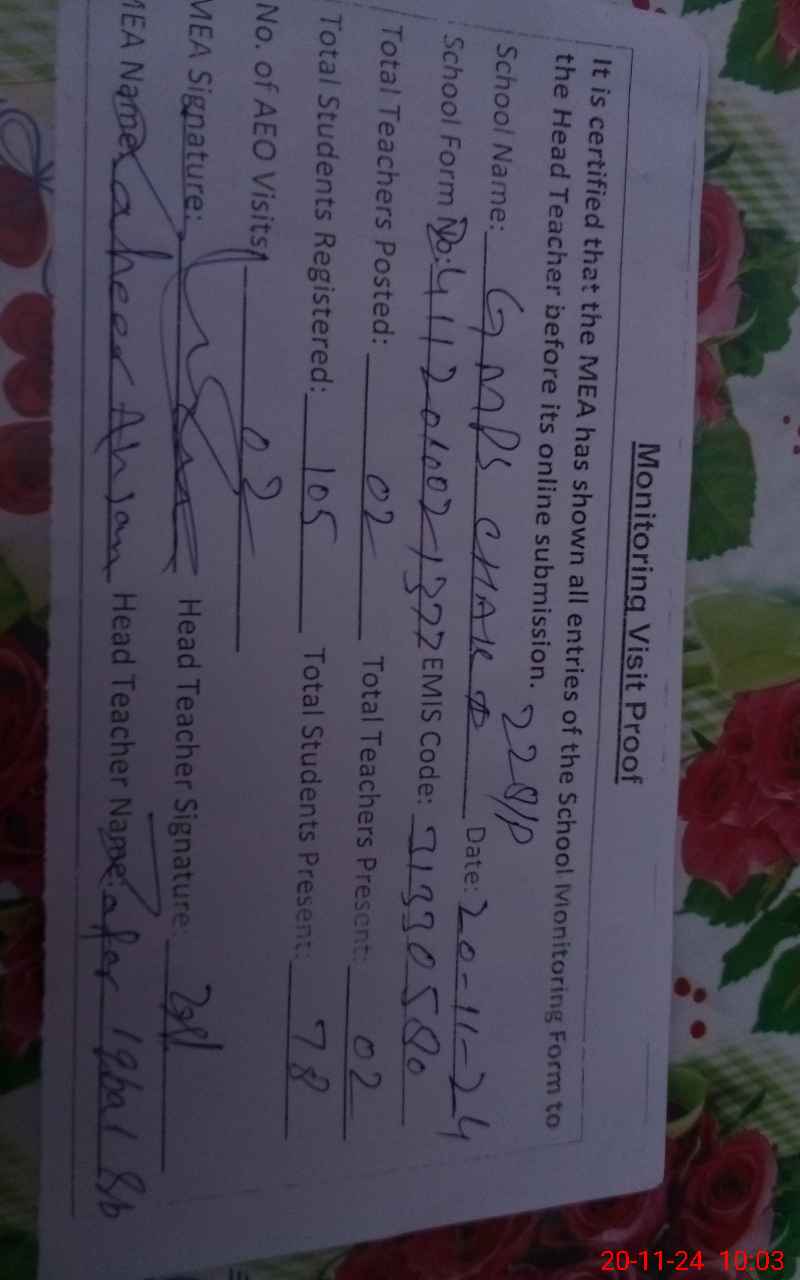 Monitoring Visit Proof
It is certified that the MEA has shown all entries of the School Monitoring Form to
the Head Teacher before its online submission.
229/P
School Name: GMPS CHAK # Date: 20-11-24
School Form No: EMIS Code: 31330580
Total Teachers Posted: 02 Total Teachers Present: 02
Total Students Registered: 105 Total Students Present: 78
No. of AEO Visits 02
MEA Signature: Head Teacher Signature:
MEA Name: Zaheer Ahsan Head Teacher Name: Zafar Iqbal
20-11-24 10:03